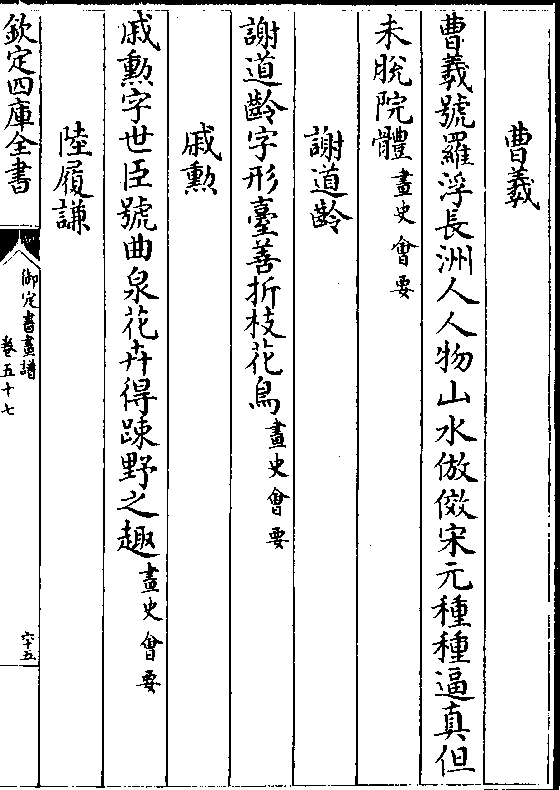 曹羲
曹羲號羅浮長洲人人物山水倣傚宋元種種逼真但
未脫院體畫史會要
謝道齡
謝道齡字彤臺善折枝花鳥畫史會要
戚勲
戚勲字世臣號曲泉花卉得踈野之趣畫史會要
陸履謙
欽定四庫全書
御定書畫譜
卷五十七
六十五